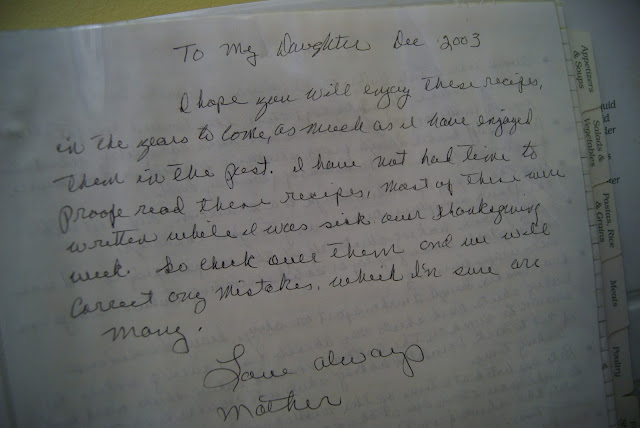 To My Daughter Dec 2003
I hope you will enjoy these recipes,
in the years to come, as much as I have enjoyed
them in the past. I have not had time to
proofe read these recipes, most of these were
written while I was sick over thanksgiving
week. So check over them and we will
correct any mistakes, which I'm sure are
many.
Love always
Mother
Appetizers
& Soups
Salads &
Vegetables
Pastas, Rice
& Grains
Meats
Poultry